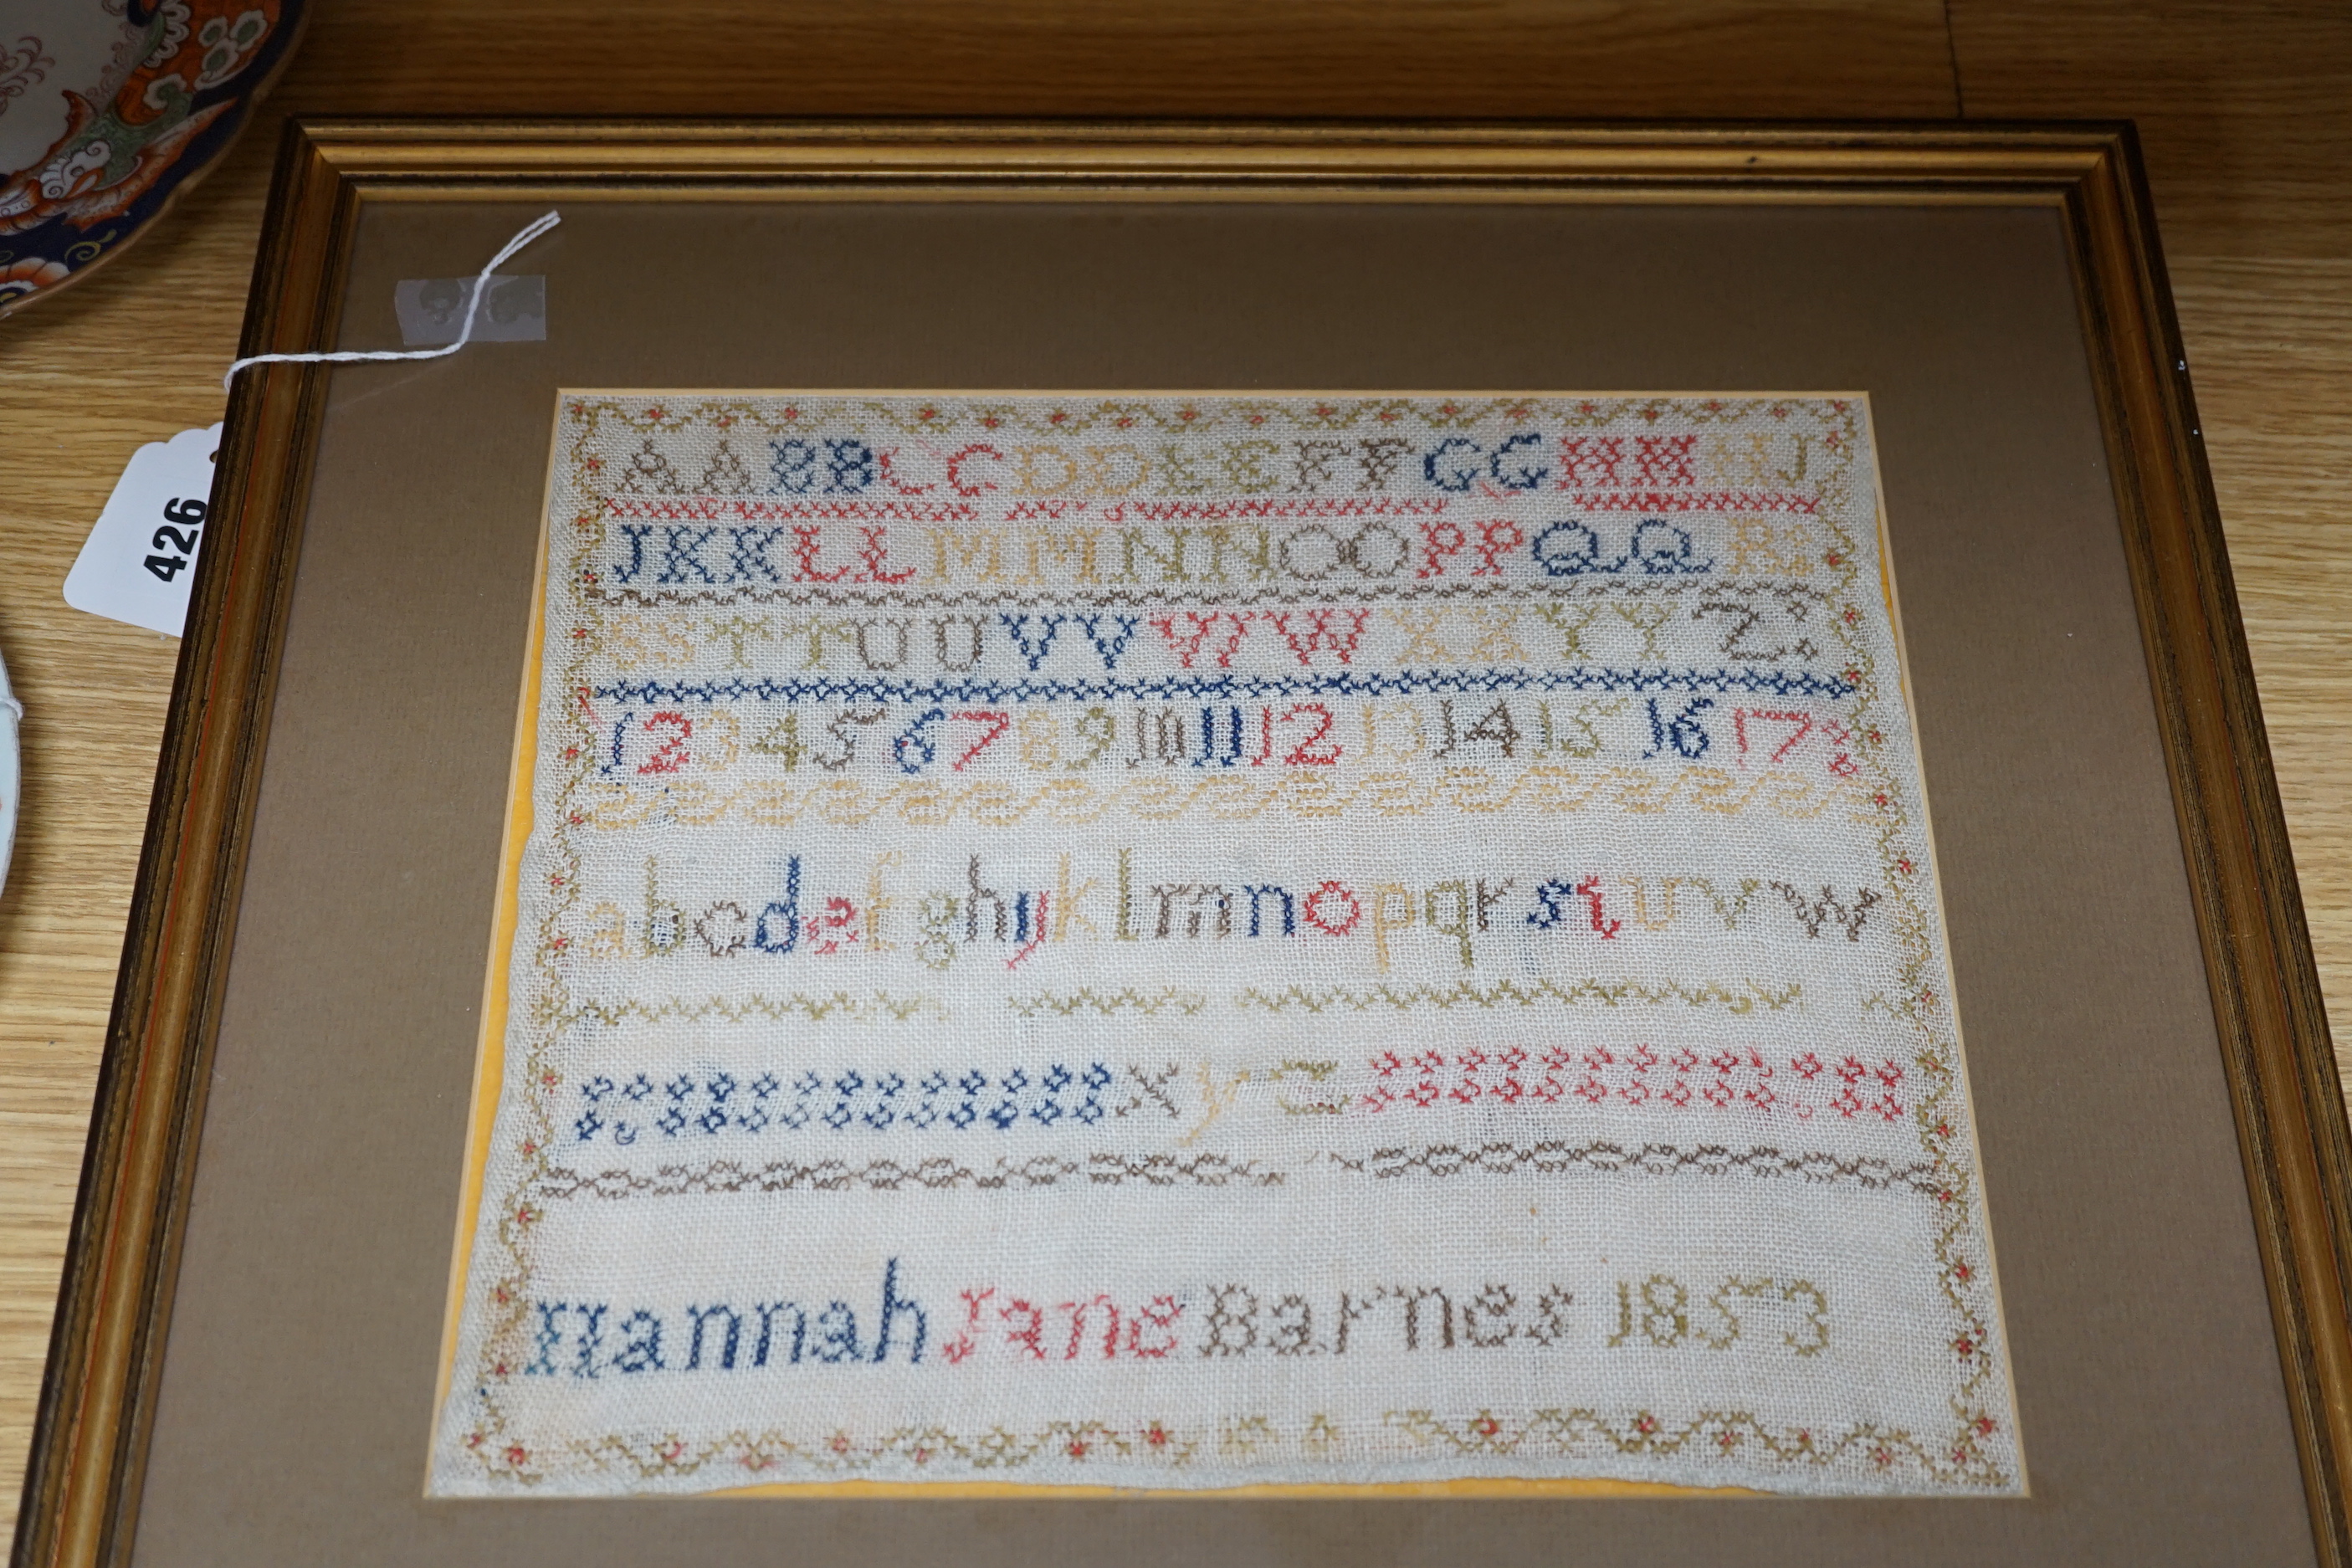 426
A A B B C C D D E E F F G G H H I I J
J K K L L M M N N O O P P Q Q R R
S S T T U U V V W W X X Y Y Z
1 2 3 4 5 6 7 8 9 10 11 12 13 14 15 16 17
a b c d e f g h i j k l m n o p q r s t u v w
x y z
Hannah Jane Barnes 1853